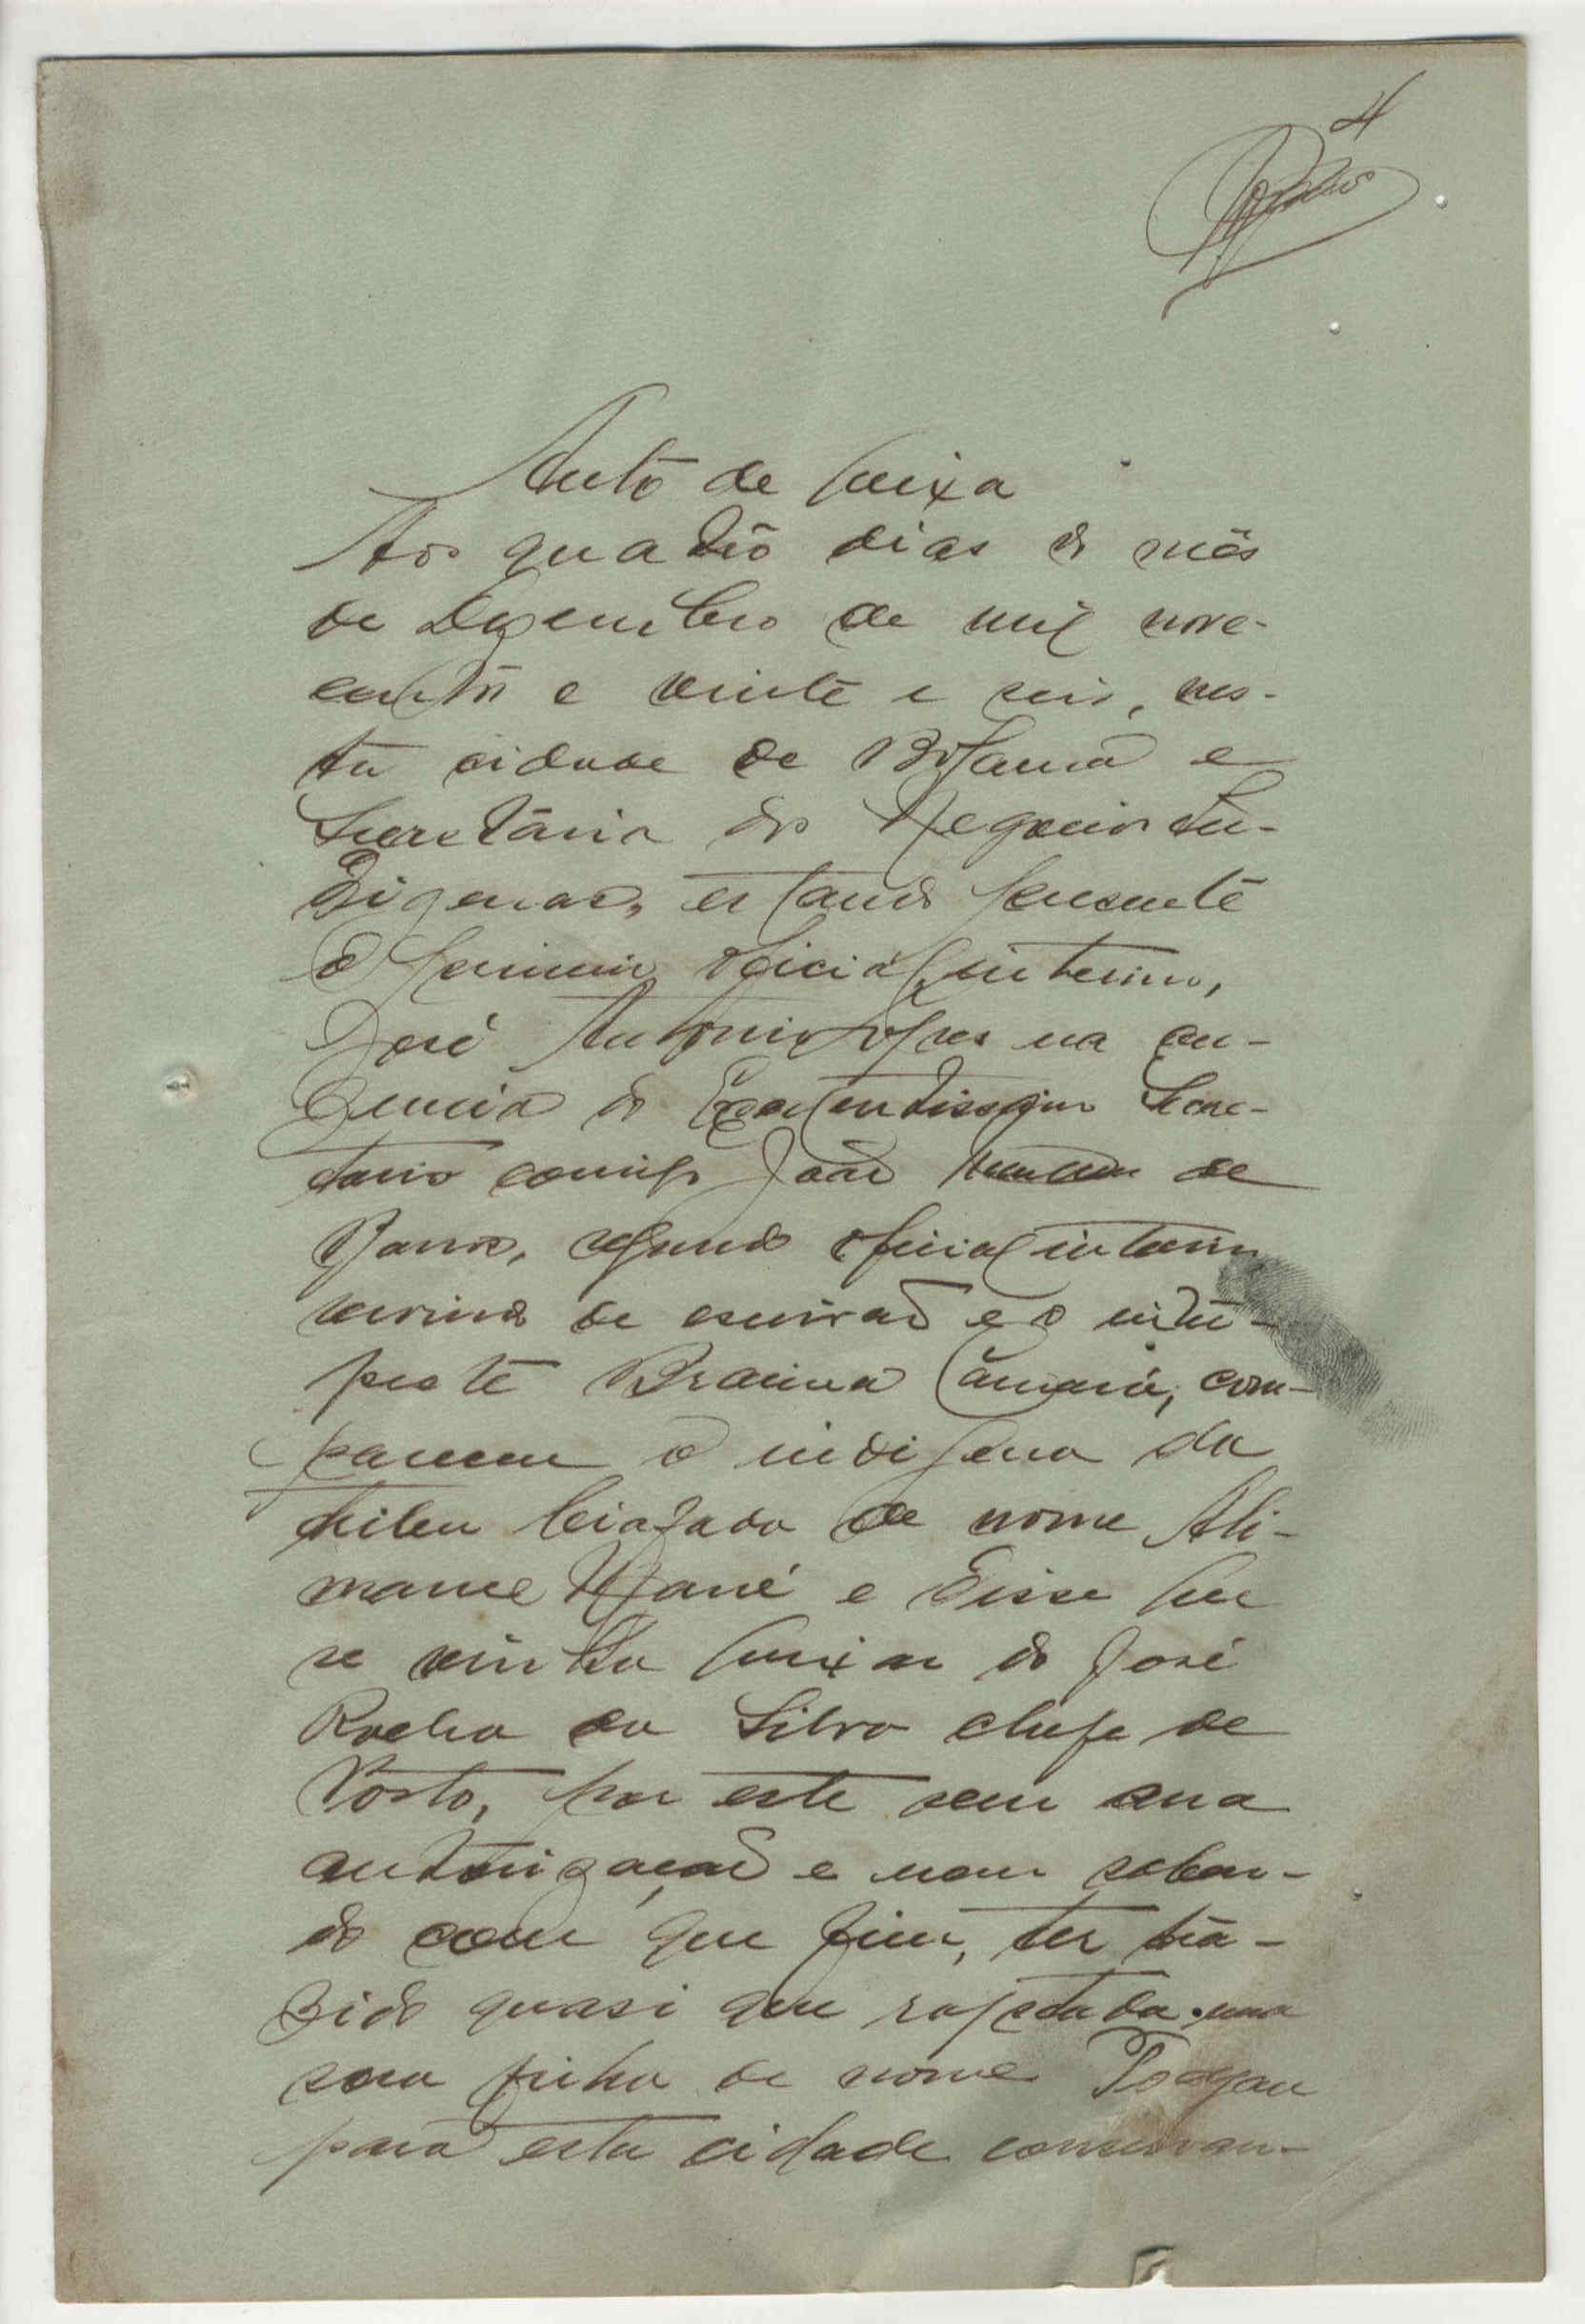 4
Auto de queixa
Aos quatro dias do mês
de Dezembro de mil nove-
centos e vinte e seis, nes-
ta cidade de Bolama e
Secretária dos Negocios In-
digenas, estando presente
o primeiro oficial, interino,
José Antonio na au-
zencia do Excelentissimo Secre-
tario comigo João de
Barros, segundo oficial interino
servindo de escrivão e o intér-
prete Braima Câmará, com-
pareceu o indigena da
tribu biafada de nome Ali-
mame Mané e disse que
se vinha queixar do José
Rocha da Silva chefe de
Posto, por este sem sua
autorização e nem saben-
do com que fim, ter tra-
zido quasi que raptada uma
sua filha de nome
para esta cidade conservan-